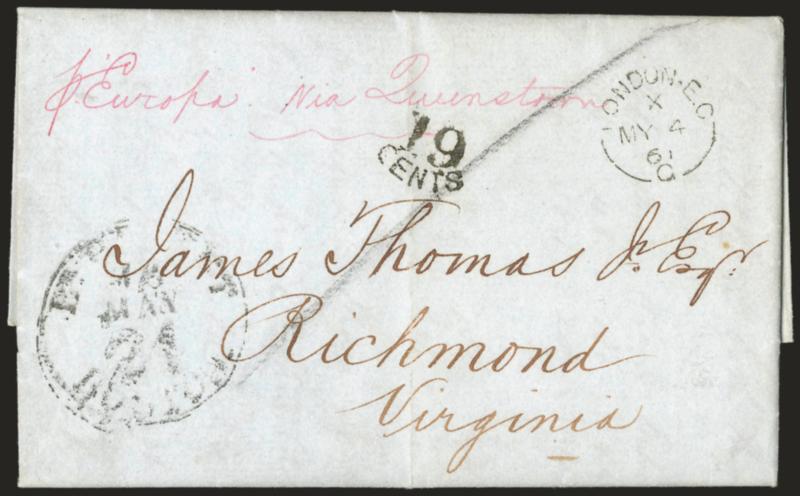 pr Europa via Queenstown
LONDON·E.C
X
MY 4
61
G
19
CENTS
James Thomas Jr. Esqr.
Richmond
Virginia
MAY
24
BOSTON